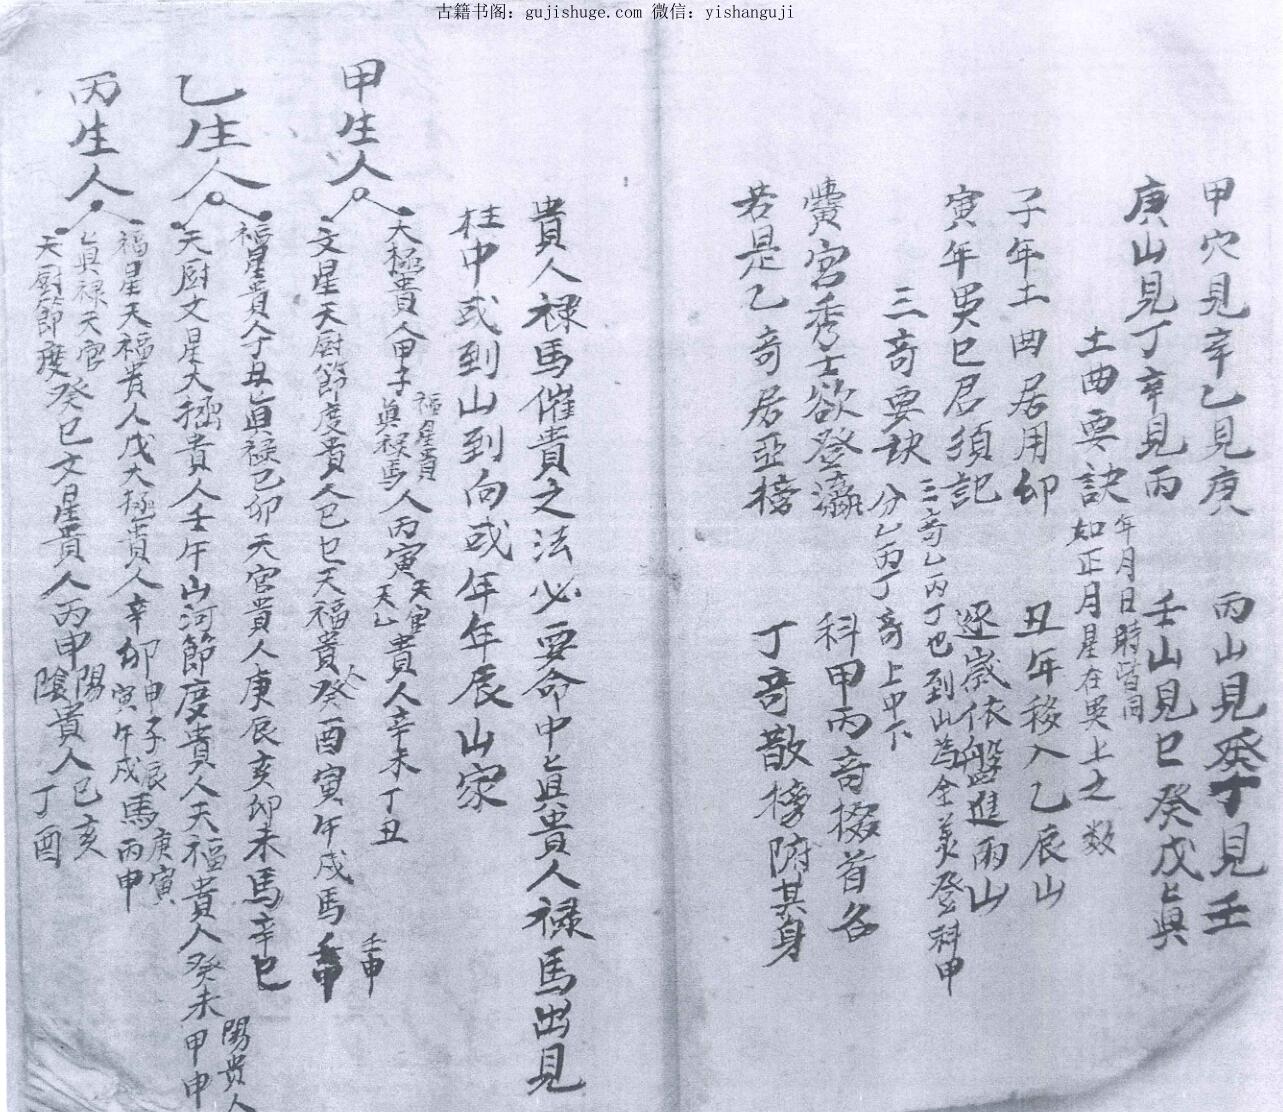 古籍书阁：gujishuge.com 微信：yishanguji
甲穴見辛乙見庚　丙山見癸丁見壬
庚山見丁辛見丙　壬山見巳癸戊真
土曲要訣 年月日時皆同 如正月星在巽上之数
子年土曲居用卯　丑年移入乙辰山
寅年巽巳君須記　逐崴依盤進兩山
三竒要訣 三竒乙丙丁也到山為全美登科甲 分乙丙丁竒上中下
黌宮秀士欲登瀛　科甲丙竒掇首名
若是乙竒居亞榜　丁竒散榜附其身
貴人禄馬催貴之法必要命中真貴人禄馬出見
柱中或到山到向或年年辰山家
甲生人
太極貴人甲子 福星貴 真禄馬 人丙寅 天官 天乙 貴人辛未丁丑
文星天厨節度貴人己巳天福貴人癸酉寅午戌馬壬申 壬申
乙生人
福星貴人丁丑真禄己卯天官貴人庚辰亥卯未馬辛巳
天厨文星太極貴人壬午山河節度貴人天福貴人癸未甲申 陽貴人
丙生人
福星天福貴人戊太極貴人辛卯 甲子辰 寅午戌 馬 庚寅 丙申
真禄天官
天厨節度癸巳文星貴人丙申 陽 陰 貴人 己亥 丁酉